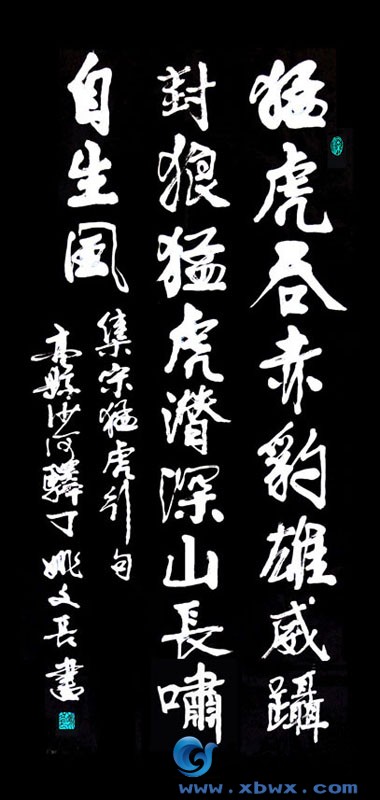 猛虎吞赤豹雄威躡
封狼猛虎潛深山長嘯
自生風
集宋猛虎引句
沙河驎丁姚文長書
www.xbwx.com